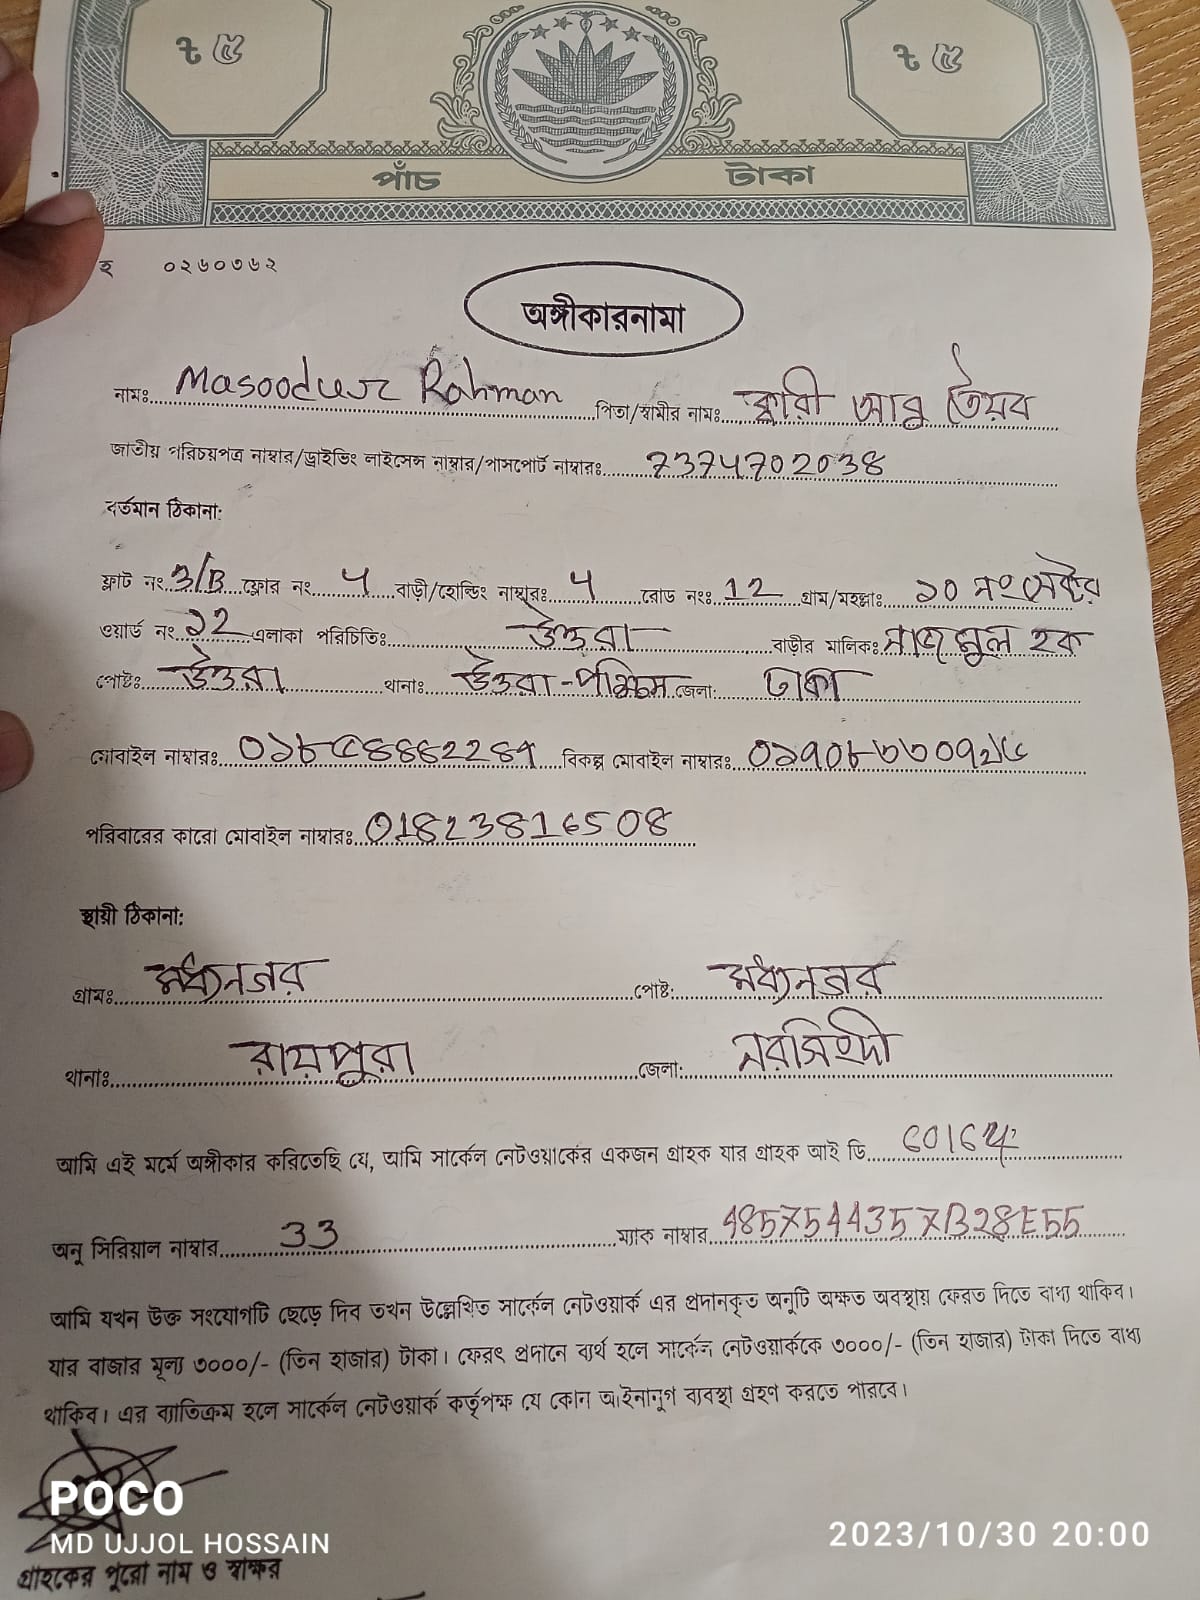 ৳ ৫ ৳ ৫
পাঁচ টাকা
হ ০২৬০৩৬২
অঙ্গীকারনামা
নামঃ Masoodur Rahman পিতা/স্বামীর নামঃ ক্বারী আবু তৈয়ব
জাতীয় পরিচয়পত্র নাম্বার/ড্রাইভিং লাইসেন্স নাম্বার/পাসপোর্ট নাম্বারঃ 7374702038
বর্তমান ঠিকানা:
ফ্লাট নং 3/B ফ্লোর নং 4 বাড়ী/হোল্ডিং নাম্বারঃ 4 রোড নংঃ 12 গ্রাম/মহল্লাঃ ১০ নং সেক্টর
ওয়ার্ড নং এলাকা পরিচিতিঃ উত্তরা বাড়ীর মালিকঃ হক
পোষ্টঃ উত্তরা থানাঃ উত্তরা-পশ্চিম জেলা: ঢাকা
মোবাইল নাম্বারঃ বিকল্প মোবাইল নাম্বারঃ
পরিবারের কারো মোবাইল নাম্বারঃ 01823816508
স্থায়ী ঠিকানা:
গ্রামঃ মধ্যনগর পোষ্ট: মধ্যনগর
থানাঃ রায়পুরা জেলা: নরসিংদী
আমি এই মর্মে অঙ্গীকার করিতেছি যে, আমি সার্কেল নেটওয়ার্কের একজন গ্রাহক যার গ্রাহক আই ডি
অনু সিরিয়াল নাম্বার 33 ম্যাক নাম্বার 4857544357B28E55
আমি যখন উক্ত সংযোগটি ছেড়ে দিব তখন উল্লেখিত সার্কেল নেটওয়ার্ক এর প্রদানকৃত অনুটি অক্ষত অবস্থায় ফেরত দিতে বাধ্য থাকিব।
যার বাজার মূল্য ৩০০০/- (তিন হাজার) টাকা। ফেরৎ প্রদানে ব্যর্থ হলে সার্কেল নেটওয়ার্ককে ৩০০০/- (তিন হাজার) টাকা দিতে বাধ্য
থাকিব। এর ব্যাতিক্রম হলে সার্কেল নেটওয়ার্ক কর্তৃপক্ষ যে কোন আইনানুগ ব্যবস্থা গ্রহণ করতে পারবে।
POCO
MD UJJOL HOSSAIN
2023/10/30 20:00
গ্রাহকের পুরো নাম ও স্বাক্ষর